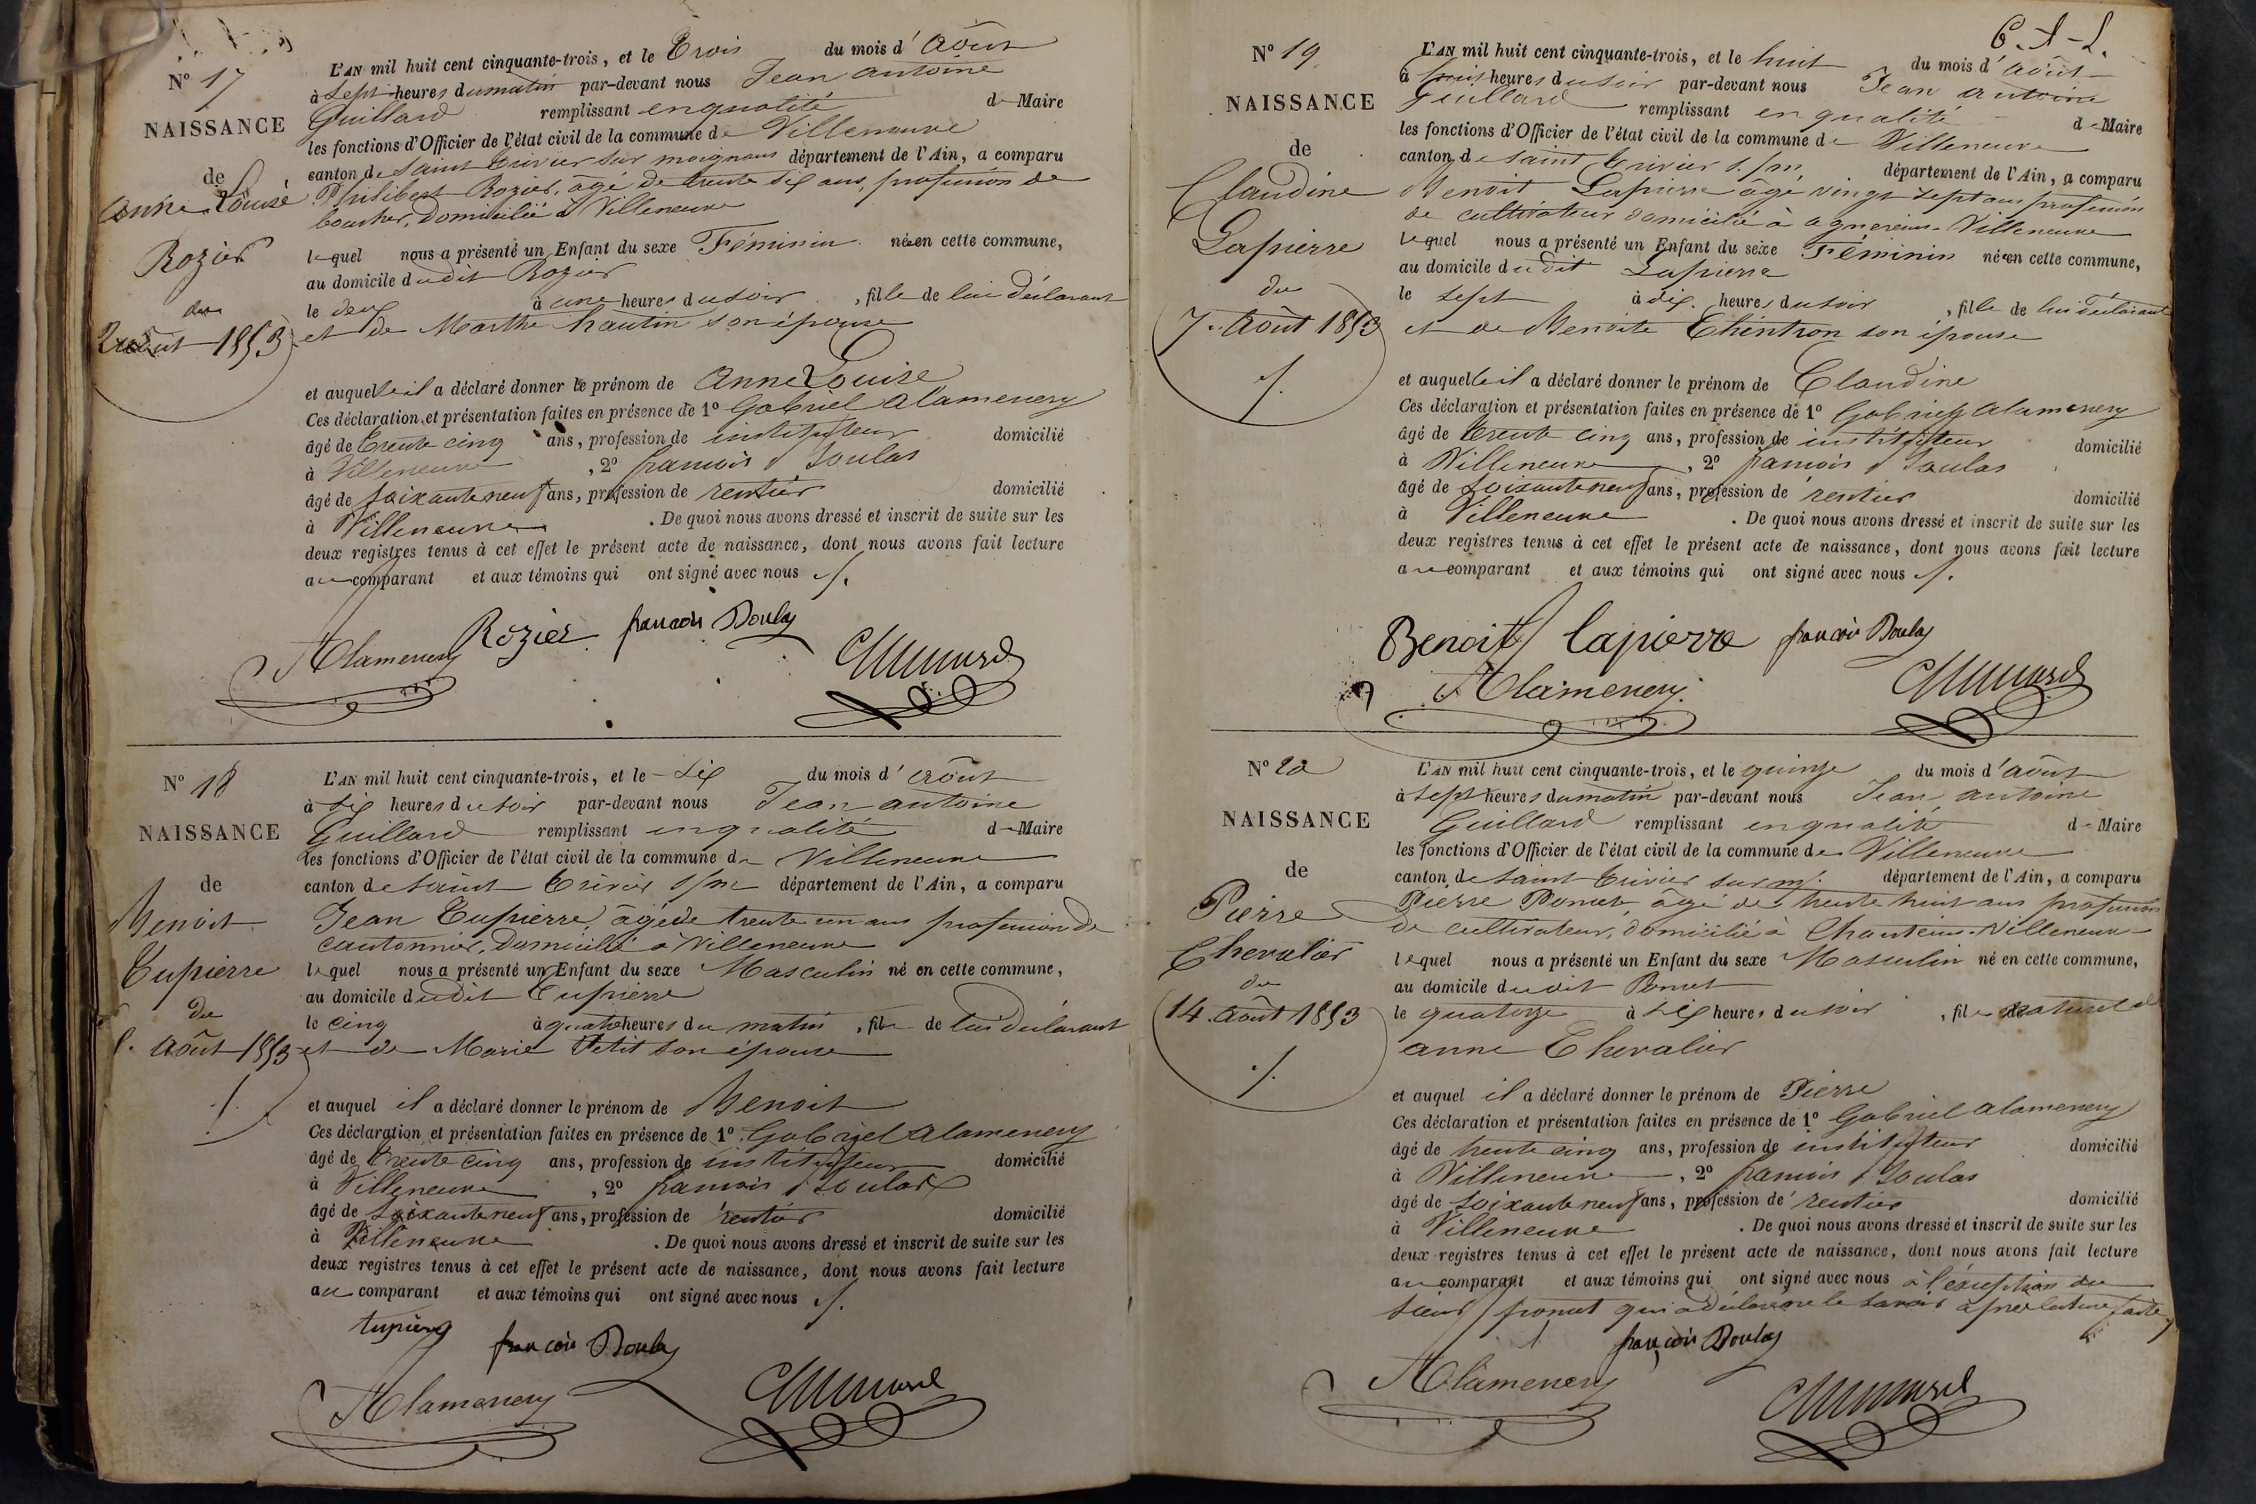 Nº 17
NAISSANCE
de
Anne Louise
Rozier
du
2 août 1853
L'AN mil huit cent cinquante-trois, et le Trois du mois d'Août
à Sept heures du matin par-devant nous Jean antoine
Guillard remplissant en qualité de Maire
les fonctions d'Officier de l'état civil de la commune de Villeneuve
canton de Saint Trivier sur moignans département de l'Ain, a comparu
Philibert Rozier, âgé de trente six ans, profession de
boucher, domicilié à Villeneuve
lequel nous a présenté un Enfant du sexe Féminin née en cette commune,
au domicile dudit Rozier
le deux à une heures du soir, fille de lui déclarant
et de Marthe hautin son épouse
et auquelle il a déclaré donner le prénom de Anne Louise
Ces déclaration et présentation faites en présence de 1º Gabriel Alamenery
âgé de Trente cinq ans, profession de instituteur domicilié
à Villeneuve, 2º françois Doulas
âgé de soixante neuf ans, profession de rentier domicilié
à Villeneuve. De quoi nous avons dressé et inscrit de suite sur les
deux registres tenus à cet effet le présent acte de naissance, dont nous avons fait lecture
au comparant et aux témoins qui ont signé avec nous ./.
Rozier françois Doulas
Alamenery
Nº 18
NAISSANCE
de
Benoit
Tupierre
du
5. Août 1853
./.
L'AN mil huit cent cinquante-trois, et le Six du mois d'Août
à six heures du soir par-devant nous Jean antoine
Guillard remplissant en qualité de Maire
les fonctions d'Officier de l'état civil de la commune de Villeneuve
canton de Saint Trivier s/m département de l'Ain, a comparu
Jean Tupierre, âgé de trente un ans profession de
cantonnier, domicilié à Villeneuve
lequel nous a présenté un Enfant du sexe Masculin né en cette commune,
au domicile dudit Tupierre
le cinq à quatre heures du matin, fils de lui déclarant
et de Marie Petit son épouse
et auquel il a déclaré donner le prénom de Benoit
Ces déclaration et présentation faites en présence de 1º Gabriel Alamenery
âgé de Trente cinq ans, profession de instituteur domicilié
à Villeneuve, 2º françois Doulas
âgé de soixante neuf ans, profession de rentier domicilié
à Villeneuve. De quoi nous avons dressé et inscrit de suite sur les
deux registres tenus à cet effet le présent acte de naissance, dont nous avons fait lecture
au comparant et aux témoins qui ont signé avec nous ./.
françois Doulas
Alamenery
Nº 19
NAISSANCE
de
Claudine
Lapierre
du
7. Août 1853
./.
L'AN mil huit cent cinquante-trois, et le huit du mois d'Août
à huit heures du soir par-devant nous Jean antoine
Guillard remplissant en qualité de Maire
les fonctions d'Officier de l'état civil de la commune de Villeneuve
canton de Saint Trivier s/m département de l'Ain, a comparu
Benoit Lapierre âgé vingt sept ans profession
de cultivateur domicilié à agnereins-Villeneuve
lequel nous a présenté un Enfant du sexe Féminin née en cette commune,
au domicile dudit Lapierre
le sept à dix heures du soir, fille de lui déclarant
et de Benoite Thintron son épouse
et auquelle il a déclaré donner le prénom de Claudine
Ces déclaration et présentation faites en présence de 1º Gabriel Alamenery
âgé de Trente cinq ans, profession de instituteur domicilié
à Villeneuve, 2º françois Doulas
âgé de soixante neuf ans, profession de rentier domicilié
à Villeneuve. De quoi nous avons dressé et inscrit de suite sur les
deux registres tenus à cet effet le présent acte de naissance, dont nous avons fait lecture
au comparant et aux témoins qui ont signé avec nous ./.
Benoit lapierre françois Doulas
Alamenery
Nº 20
NAISSANCE
de
Pierre
Chevalier
du
14. Août 1853
./.
L'AN mil huit cent cinquante-trois, et le quinze du mois d'Août
à sept heures du matin par-devant nous Jean antoine
Guillard remplissant en qualité de Maire
les fonctions d'Officier de l'état civil de la commune de Villeneuve
canton de Saint Trivier sur m. département de l'Ain, a comparu
Pierre Poncet âgé de trente huit ans profession
de cultivateur, domicilié à Chanteins-Villeneuve
lequel nous a présenté un Enfant du sexe Masculin né en cette commune,
au domicile dudit Poncet
le quatorze à six heures du soir, fils naturel de
anne Chevalier
et auquel il a déclaré donner le prénom de Pierre
Ces déclaration et présentation faites en présence de 1º Gabriel Alamenery
âgé de trente cinq ans, profession de instituteur domicilié
à Villeneuve, 2º françois Doulas
âgé de soixante neuf ans, profession de rentier domicilié
à Villeneuve. De quoi nous avons dressé et inscrit de suite sur les
deux registres tenus à cet effet le présent acte de naissance, dont nous avons fait lecture
au comparant et aux témoins qui ont signé avec nous à l'exception du
sieur poncet qui a déclaré ne le savoir après lecture faite
françois Doulas
Alamenery